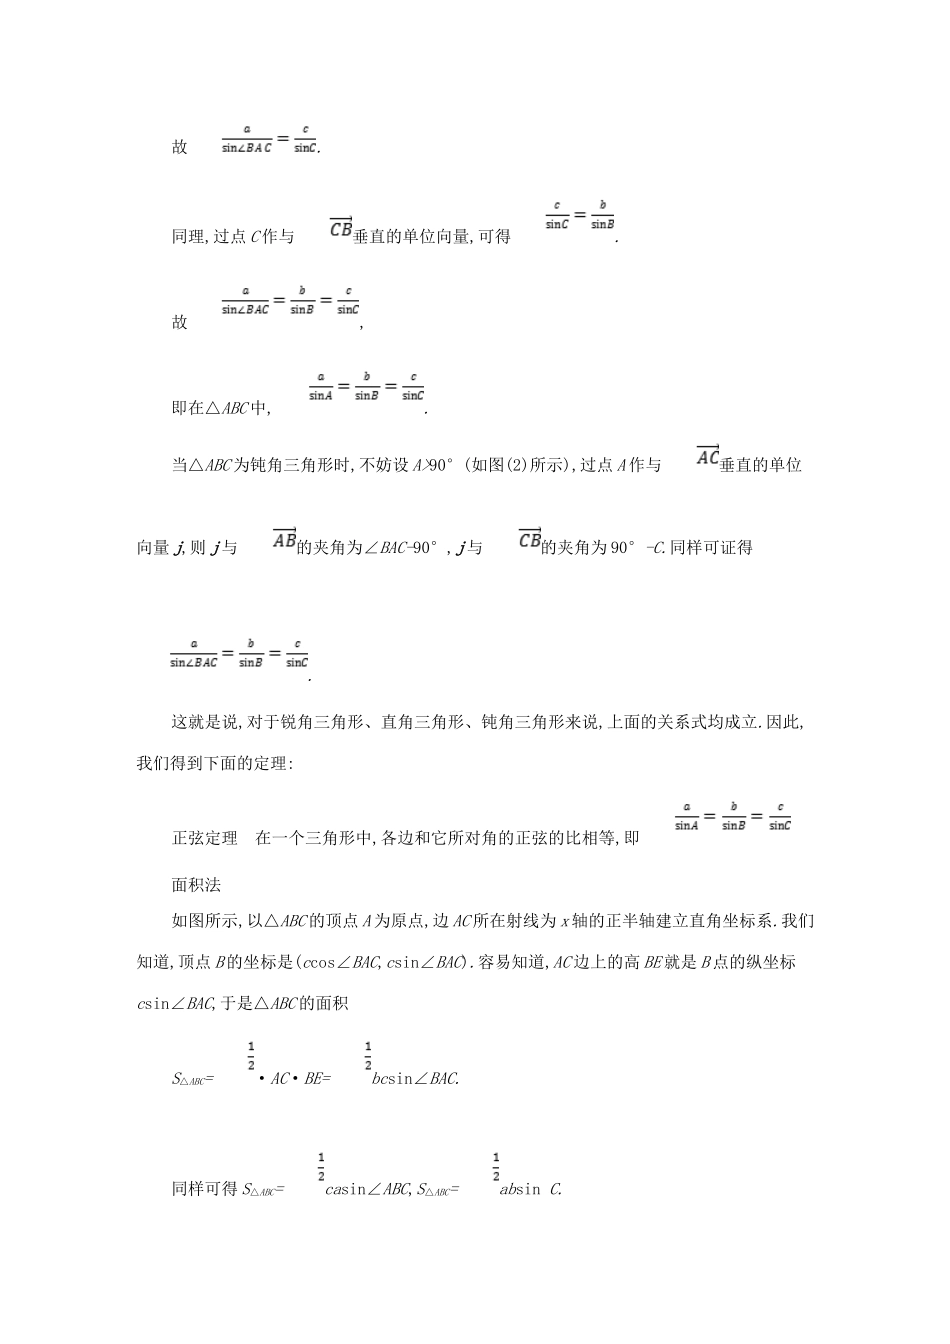 故 a/sin∠BAC = c/sinC.
同理,过点 C 作与 CB→ 垂直的单位向量,可得 c/sinC = b/sinB.
故 a/sin∠BAC = b/sinB = c/sinC,
即在△ABC 中, a/sinA = b/sinB = c/sinC.
当△ABC 为钝角三角形时,不妨设 A>90°(如图(2)所示),过点 A 作与 AC→ 垂直的单位
向量 j,则 j 与 AB→ 的夹角为∠BAC-90°,j 与 CB→ 的夹角为 90°-C.同样可证得
a/sin∠BAC = b/sinB = c/sinC.
这就是说,对于锐角三角形、直角三角形、钝角三角形来说,上面的关系式均成立.因此,
我们得到下面的定理:
正弦定理 在一个三角形中,各边和它所对角的正弦的比相等,即 a/sinA = b/sinB = c/sinC
面积法
如图所示,以△ABC 的顶点 A 为原点,边 AC 所在射线为 x 轴的正半轴建立直角坐标系.我们
知道,顶点 B 的坐标是(ccos∠BAC,csin∠BAC).容易知道,AC 边上的高 BE 就是 B 点的纵坐标
csin∠BAC,于是△ABC 的面积
S△ABC= 1/2·AC·BE= 1/2bcsin∠BAC.
同样可得 S△ABC= 1/2casin∠ABC,S△ABC= 1/2absin C.